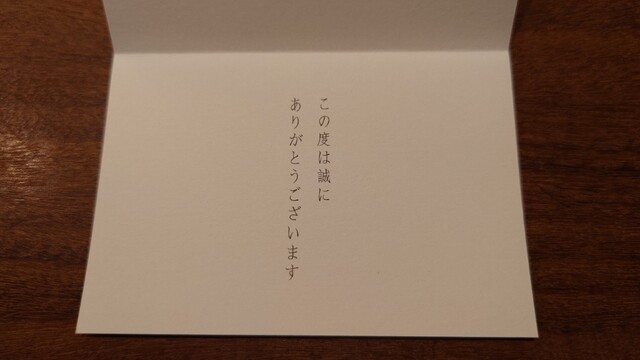 この度は誠に
ありがとうございます